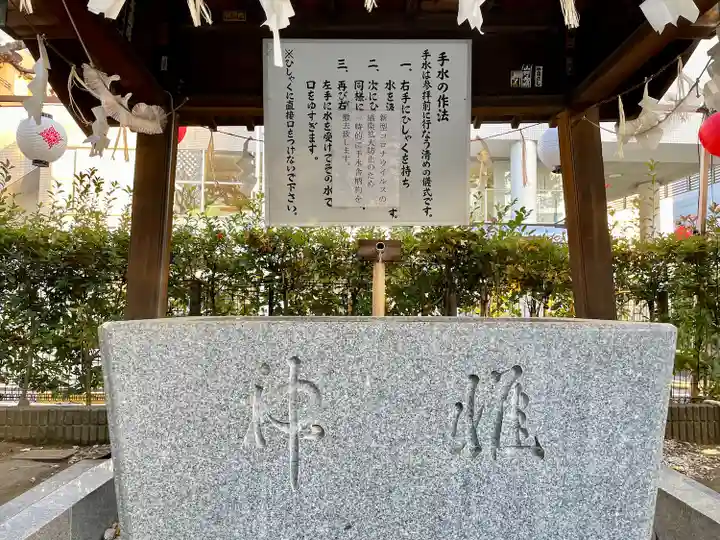 手水の作法
手水は参拝前に行なう清めの儀式です。
一、右手にひしゃくを持ち
水を汲
す。
二、次にひ
同様に
三、再び右
左手に水を受けてその水で
口をゆすぎます。
※ひしゃくに直接口をつけないで下さい。
新型コロナウイルスの
感染拡大防止のため
一時的に手水舎柄杓を
撤去致します。
惟神